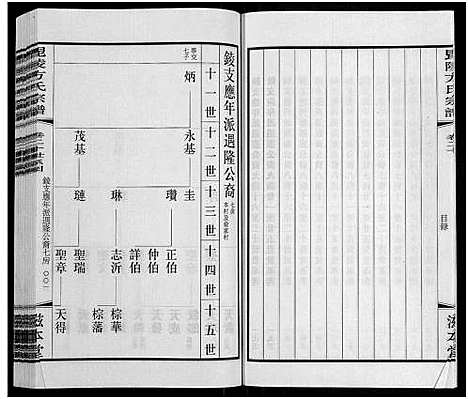 毘陵方氏宗譜
卷二十
目錄
滋本堂
錂支應年派遇隆公裔
七房
本村及俞家村
十一世十二世十三世十四世十五世
應交
七子
炳
永基
圭
瓚
正伯
仲伯
詳伯
琳
志沂
棕華
棕藩
茂基
璉
聖瑞
聖章
天得
毘陵方氏宗譜
錂支應年派遇隆公裔七房
〇〇一
滋本堂